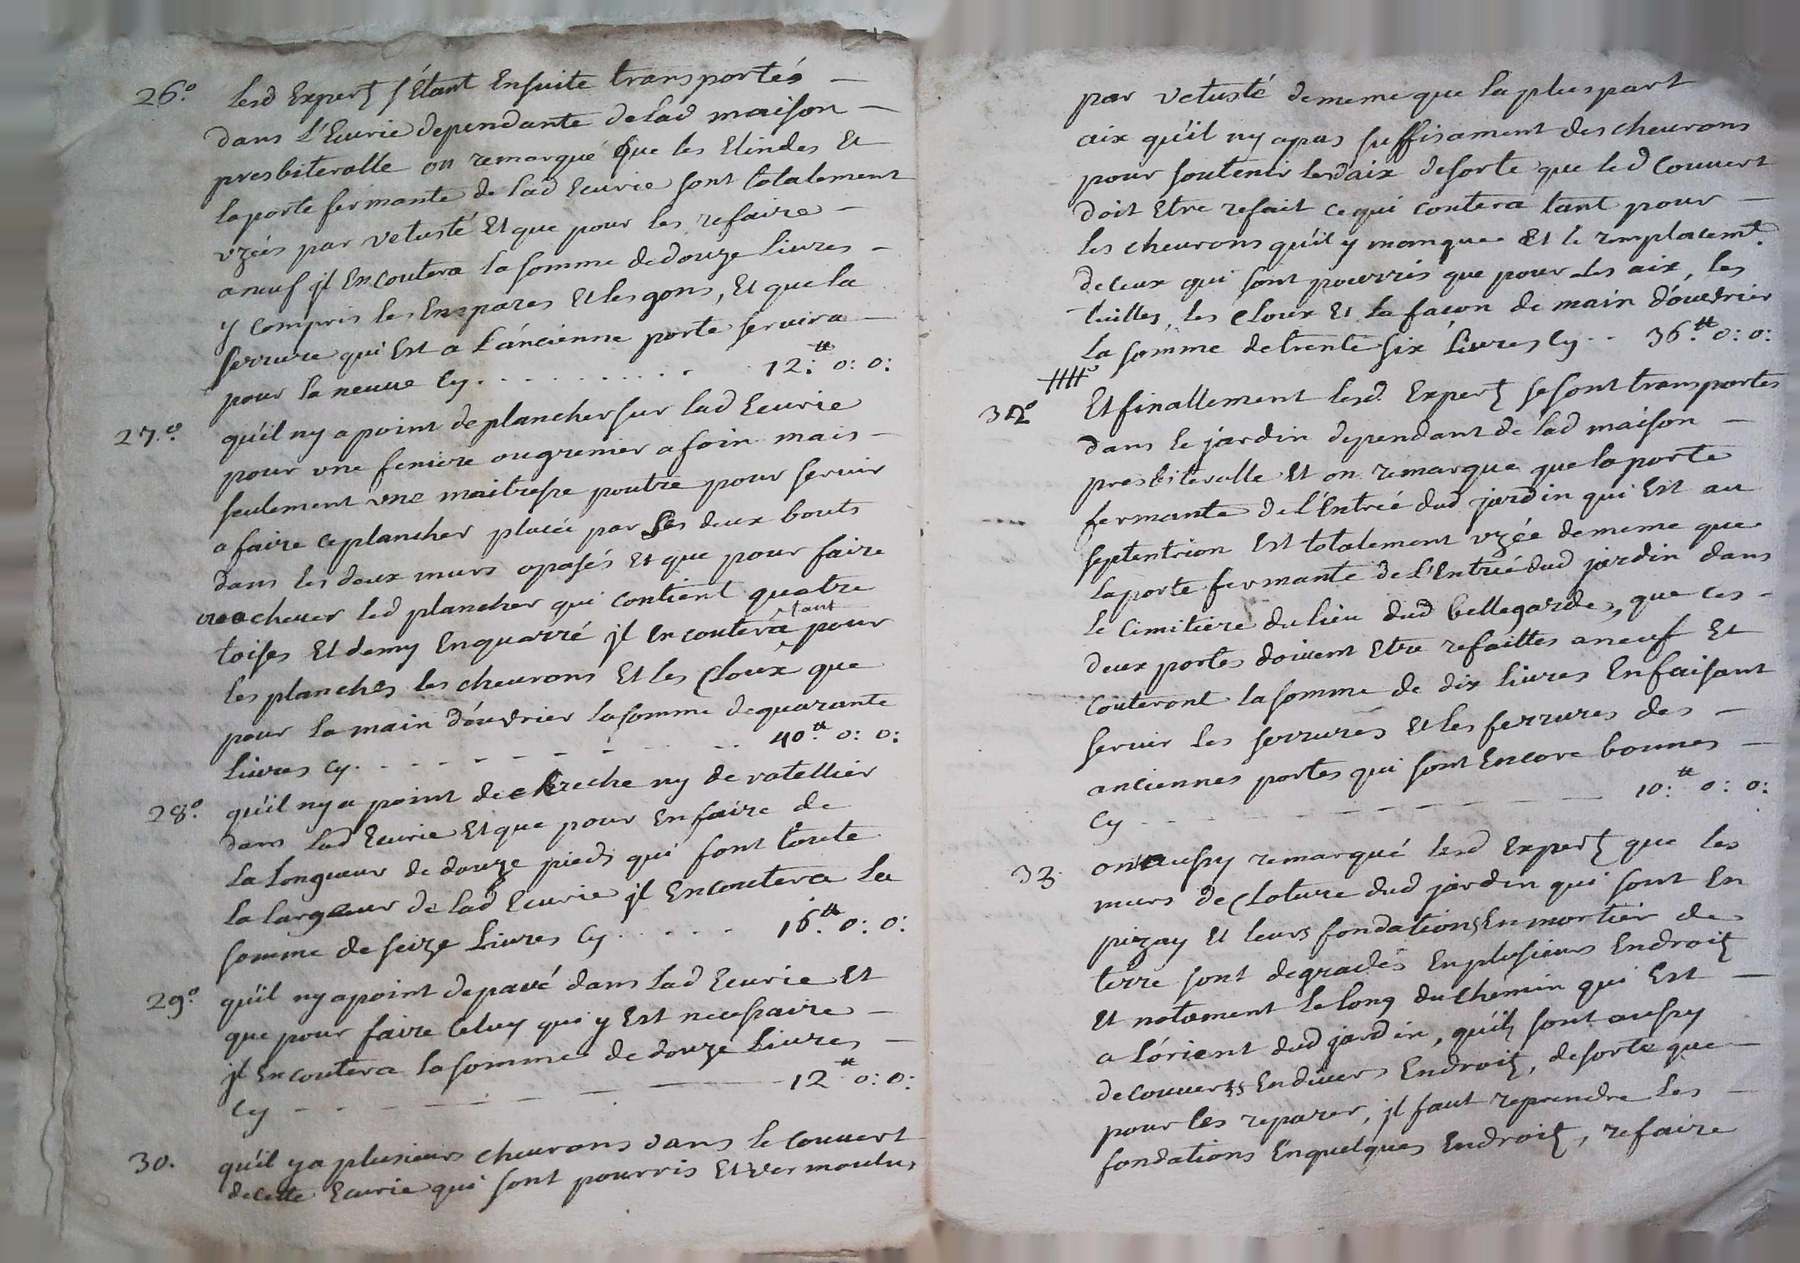 26.º lesd Expertz s'Etant Ensuite transportés —
dans L'Ecurie dependante de lad maison —
presbiteralle on remarqué que les Elindes Et
la porte fermante de lad Ecurie sont totalement
vzéés par vetusté Et que pour les refaire —
a neuf jl En coutera la somme de douze livres —
y compris les Enspares Et les gons, Et que la
serrure qui Est a L'ancienne porte servira —
pour la neuve Cy . . . . . . . . . . 12:₶ 0: 0:
27.º qu'il ny a point de plancher sur lad Ecurie
pour vne feniere ou grenier a foin mais —
seulement vne maitresse poutre pour servir
a faire ce plancher placée par ses deux bouts
dans les deux murs oposés Et que pour faire
achever led plancher qui contient quatre
toises Et demy En quarré jl En coutera tant pour
les planches les chevrons Et les Cloux que
pour la main d'ouvrier la somme de quarante
Livres Cy. . . . . . . . . 40:₶ 0: 0:
28.º qu'il ny a point de creche ny de ratellier
dans lad Ecurie Et que pour En faire de
la Longueur de douze pieds qui font toute
la largeur de lad Ecurie jl En coutera la
somme de seize Livres Cy . . . . . 16:₶ 0: 0:
29.º qu'il ny a point de pavé dans lad Ecurie Et
que pour faire Celuy qui y Est necessaire —
jl En coutera la somme de douze Livres —
Cy — — — — — 12₶ 0: 0:
30. qu'il y a plusieurs chevrons dans le couvert
de cette Ecurie qui sont pourris Et vermoulus
par vetusté de meme que la pluspart
aix qu'il ny a pas suffisament des chevrons
pour soutenir lesd aix de sorte que led Couvert
doit Etre refait ce qui coutera tant pour —
les chevrons qu'il y manque Et le remplacemt.
de ceux qui sont pourris que pour les aix, les
tuilles, les Cloux Et la facon de main d'ouvrier
La somme de trente six Livres Cy . . 36:₶ 0: 0:
32º Et finallement lesd. Expertz se sont transportés
dans le jardin dependant de lad maison —
presbiteralle Et on remarqué que la porte
fermante de l'Entrée dud jardin qui Est au
septentrion Est totalement vzée de meme que
la porte fermante de L'Entrée dud jardin dans
le Cimitiere du lieu dud bellegarde, que ces —
deux portes doivent Etre refaittes a neuf Et
Couteront la somme de dix livres En faisant
servir les serrures Et les ferrures des —
anciennes portes qui sont Encore bonnes —
Cy — — — — — 10:₶ 0: 0:
33. on aussy remarqué lesd Expertz que les
murs de Cloture dud jardin qui sont En
pizay Et leurs fondations En mortier de
terre sont degradés En plusieurs Endroitz
Et notament le long du Chemin qui Est —
a L'orient dud jardin, qu'ilz sont aussy
decouverts En divers Endroitz, de sorte que —
pour les reparer, jl faut reprendre les —
fondations En quelques Endroitz, refaire